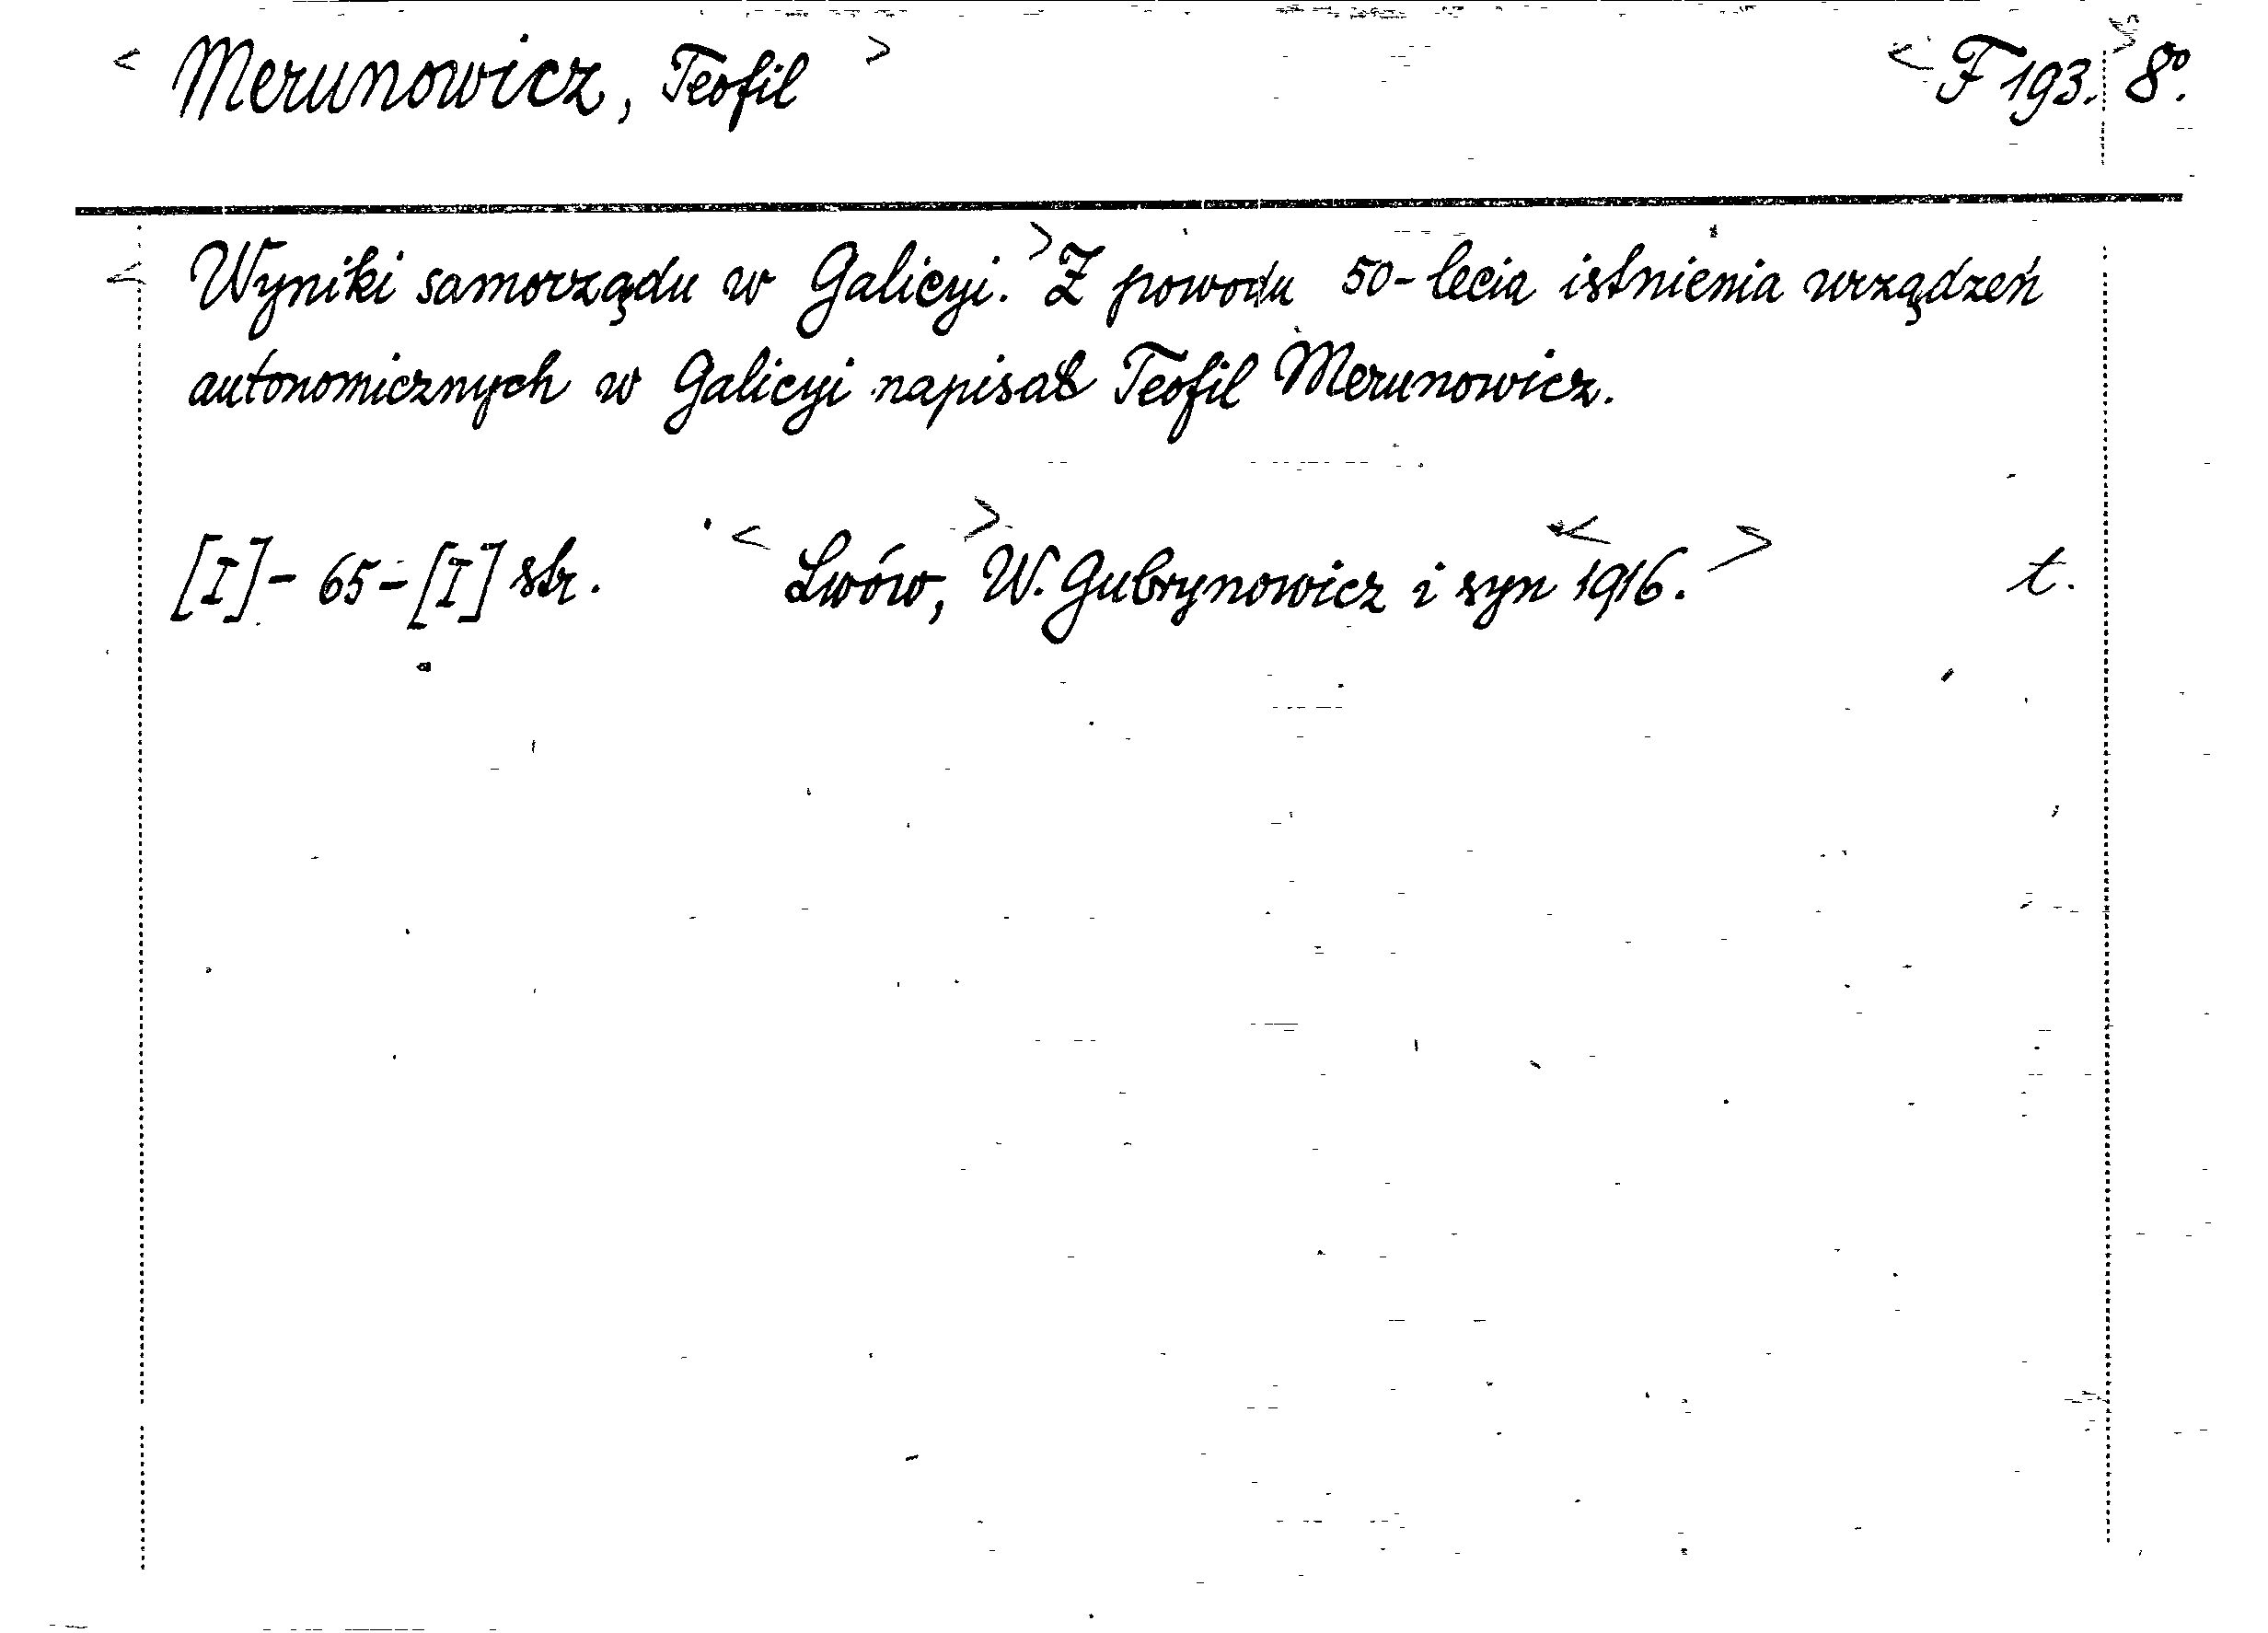 < Merunowicz, Teofil > < F 193. > 8º.
< Wyniki samorządu w Galicyi. > Z powodu 50-lecia istnienia urządzeń
autonomicznych w Galicyi napisał Teofil Merunowicz.
[I]- 65-[I] str. < Lwów, > W. Gubrynowicz i syn < 1916. > t.